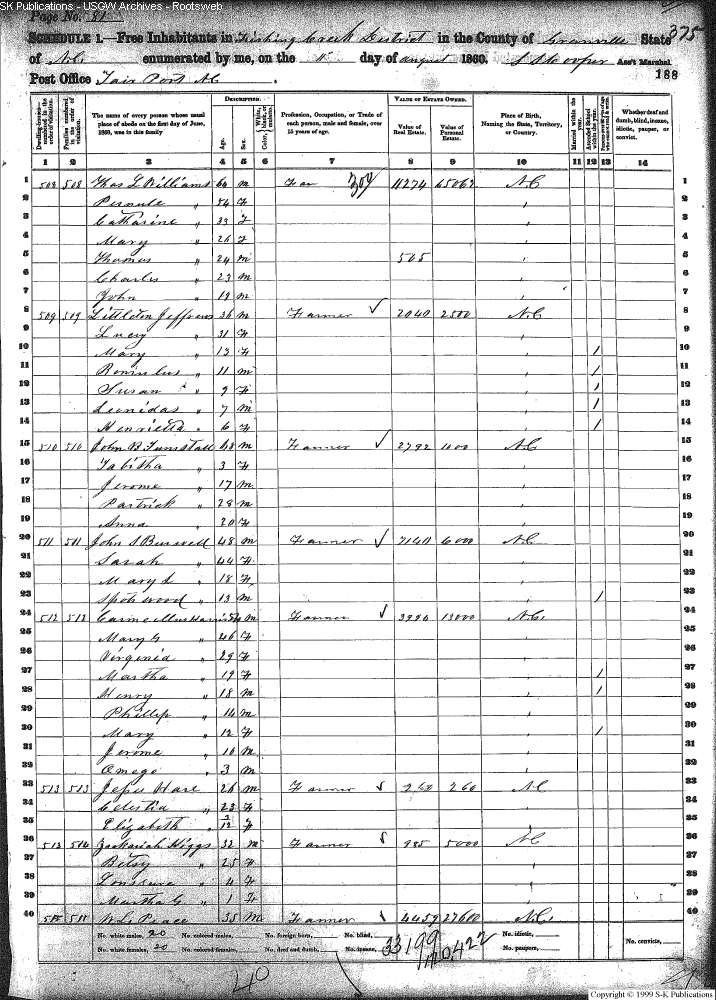 SK Publications - USGW Archives - Rootsweb
Page No. 81
SCHEDULE 1.—Free Inhabitants in Fishing Creek District in the County of Granville State 375
of N.C. enumerated by me, on the day of august 1860. Ass't Marshal
Post Office Fair Port NC. 188
Dwelling-houses—numbered in the order of visitation.
Families numbered in the order of visitation.
The name of every person whose usual place of abode on the first day of June, 1860, was in this family
DESCRIPTION.
Age. Sex. Color
Profession, Occupation, or Trade of each person, male and female, over 15 years of age.
VALUE OF ESTATE OWNED.
Value of Real Estate. Value of Personal Estate.
Place of Birth, Naming the State, Territory, or Country.
Married within the year.
Attended School within the year.
Whether deaf and dumb, blind, insane, idiotic, pauper, or convict.
1 2 3 4 5 6 7 8 9 10 11 12 13 14
1 508 508 Thos L Williams 60 m Far 11274 65062 NC 1
2 " 54 F 2
3 Catharine " 33 F 3
4 Mary " 26 F 4
5 Thomas " 24 m 505 5
6 Charles " 23 m 6
7 John " 19 m 7
8 509 509 Littleton Jeffreys 36 m Farmer ✓ 2040 2500 N.C 8
9 Lucy " 31 F 9
10 Mary " 13 F / 10
11 " 11 m / 11
12 Susan " 9 F / 12
13 Leonidas " 7 m / 13
14 Henrietta " 6 F / 14
15 510 510 John B Tunstall 68 m Farmer ✓ 2792 1000 N.C 15
16 Tabitha " 3 F 16
17 Jerome " 17 m 17
18 Partrick " 28 m 18
19 Anna " 20 F 19
20 511 511 John S Burwell 48 m Farmer ✓ 7140 6000 N.C 20
21 Sarah " 44 F 21
22 Mary L " 18 F 22
23 Spotswood " 13 m / 23
24 512 512 Harris m Farmer ✓ 3990 13000 N.C. 24
25 Mary G " 46 F 25
26 Virginia " 29 F 26
27 Martha " 19 F / 27
28 Henry " 18 m / 28
29 Phillip " 14 m 29
30 Mary " 12 F / 30
31 Jerome " 10 m 31
32 Omego " 3 m 32
33 513 513 Jesse Hare 26 m Farmer ✓ 260 260 N.C 33
34 Celestia " 23 F 34
35 Elizabeth " 3/12 F 35
36 513 514 Zachariah Higgs 32 m Farmer 985 5000 N.C 36
37 Betsy " 25 F 37
38 " 4 F 38
39 Martha G " 1 F 39
40 515 515 Peace 35 m Farmer 4459 27600 N.C. 40
No. white males, 20 No. colored males, No. foreign born, No. blind, No. idiotic,
No. white females, 20 No. colored females, No. deaf and dumb, No. insane, No. paupers, No. convicts,
33199 120,422
40
Copyright © 1999 S-K Publications